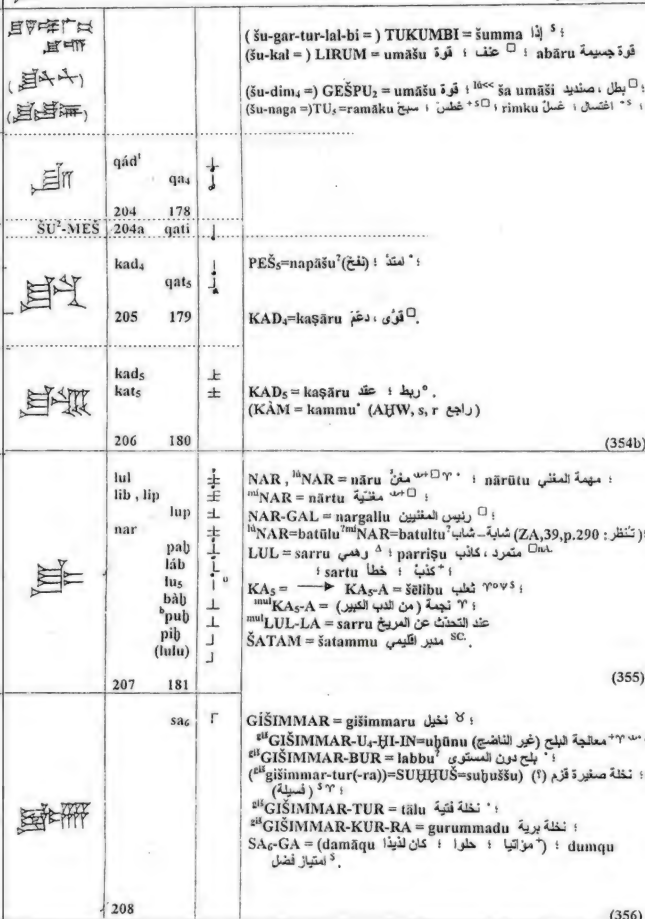 ( šu-gar-tur-lal-bi = ) TUKUMBI = šumma إذا ˢ ؛
(šu-kal = ) LIRUM = umāšu عنف ؛ قوة ؛ □ abāru قوة جسيمة
(šu-dim₄ =) GEŠPU₂ = umāšu قوة ؛ ˡú<< ša umāši بطل ، صنديد □ ؛
(šu-naga =)TU₅=ramāku غطس ؛ سبح ؛ rimku اغتسال ؛ غسل ؛
qád¹
qa₄
204 178
ŠU²-MEŠ 204a qati
kad₄ PEŠ₅=napāšu? (نفخ) امتدّ ؛
qat₅
205 179 KAD₄=kaṣāru قوّى ، دعّم □.
kad₅
kat₅ KAD₅ = kaṣāru ربط ؛ عقد °.
(KÀM = kammu* (AḪW, s, r راجع )
206 180 (354b)
lul NAR , ˡúNAR = nāru مغنّ ؛ nārūtu مهمة المغني ؛
lib , lip ᵐⁱNAR = nārtu مغنّية ؛
lup NAR-GAL = nargallu رئيس المغنيين □ ؛
nar ˡúNAR=batūlu?ᵐⁱNAR=batultu? شابة-شاب (ZA,39,p.290 : تنظر)؛
paḫ LUL = sarru وهمي ؛ parriṣu متمرد ، كاذب
láb sartu كذب ؛ خطأ ؛
lu₅ KA₅ = ⟶ KA₅-A = šēlibu ثعلب ؛
bàḫ ᵐᵘˡKA₅-A = نجمة (من الدب الكبير) ♈ ؛
ᵇpuḫ ᵐᵘˡLUL-LA = sarru عند التحدّث عن المريخ
piḫ ŠATAM = šatammu مدير اقليمي SC.
(lulu)
207 181 (355)
sa₆ GIŠIMMAR = gišimmaru نخيل ♉ ؛
ᵍⁱˢGIŠIMMAR-U₄-ḪI-IN=uḫūnu معالجة البلح (غير الناضج)
ᵍⁱˢGIŠIMMAR-BUR = labbu? بلح دون المستوي ؛
(ᵍⁱˢgišimmar-tur(-ra))=SUḪḪUŠ=suḫuššu) نخلة صغيرة قزم (؟) ؛
(فسيلة) ؛
ᵍⁱˢGIŠIMMAR-TUR = tālu نخلة فتية ؛
ᵍⁱˢGIŠIMMAR-KUR-RA = gurummadu نخلة برية ؛
SA₆-GA = (damāqu كان لذيذا ؛ حلوا ؛ مؤاتيا) ؛ dumqu
امتياز فضل ˢ.
208 (356)